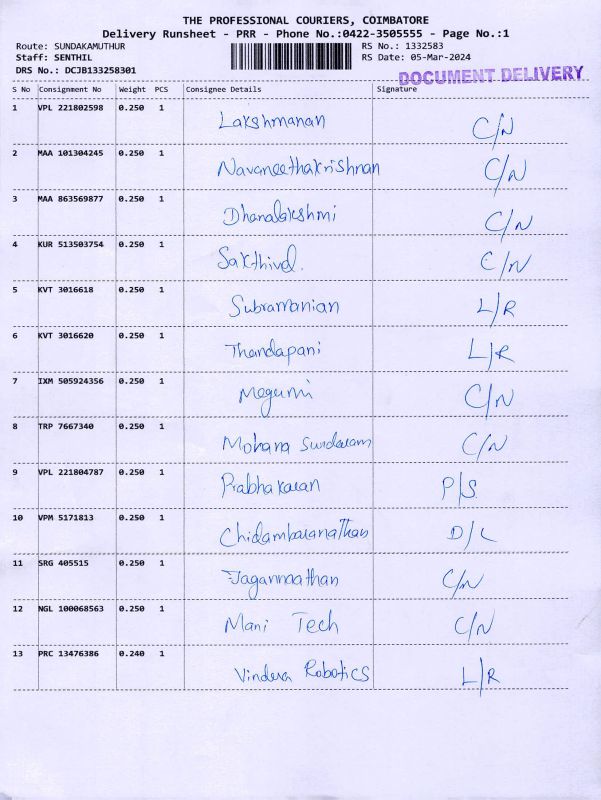 THE PROFESSIONAL COURIERS, COIMBATORE
Delivery Runsheet - PRR - Phone No.:0422-3505555 - Page No.:1
Route: SUNDAKAMUTHUR RS No.: 1332583
Staff: SENTHIL RS Date: 05-Mar-2024
DRS No.: DCJB133258301
DOCUMENT DELIVERY
S No Consignment No Weight PCS Consignee Details Signature
1 VPL 221802598 0.250 1 Lakshmanan C/N
2 MAA 101304245 0.250 1 Navaneethakrishnan C/N
3 MAA 863569877 0.250 1 Dhanalakshmi C/N
4 KUR 513503754 0.250 1 Sakthivel. C/N
5 KVT 3016618 0.250 1 Subramanian L/R
6 KVT 3016620 0.250 1 Thandapani L/R
7 IXM 505924356 0.250 1 Megumi C/N
8 TRP 7667340 0.250 1 Mohana Sundaram C/N
9 VPL 221804787 0.250 1 Prabhakaran P/S.
10 VPM 5171813 0.250 1 Chidambaranathan D/L
11 SRG 405515 0.250 1 Jagannaathan C/N
12 NGL 100068563 0.250 1 Mani Tech C/N
13 PRC 13476386 0.240 1 Robotics L/R